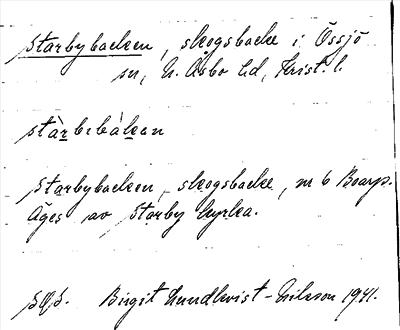 Starbybacken, skogsbacke i Össjö
sn, N. Åsbo hd, Krist. l.
stàrbibàkan
Starbybacken, skogsbacke, nr 6 Boarp.
Äges av Starby kyrka.
Birgit Lundkvist-Nilsson 1941.